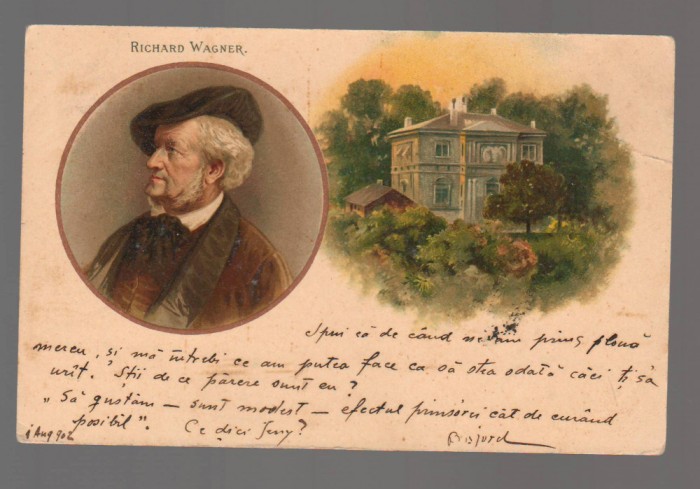 RICHARD WAGNER.
Spui că de când ne-am prins plouă
mereu, și mă întrebi ce am putea face ca să stea odată căci ți s'a
urît. Știi de ce părere sunt eu?
„Să gustăm — sunt modest — efectul prinsorei cât de curând
posibil". Ce zici Jeny?
1 Aug 902